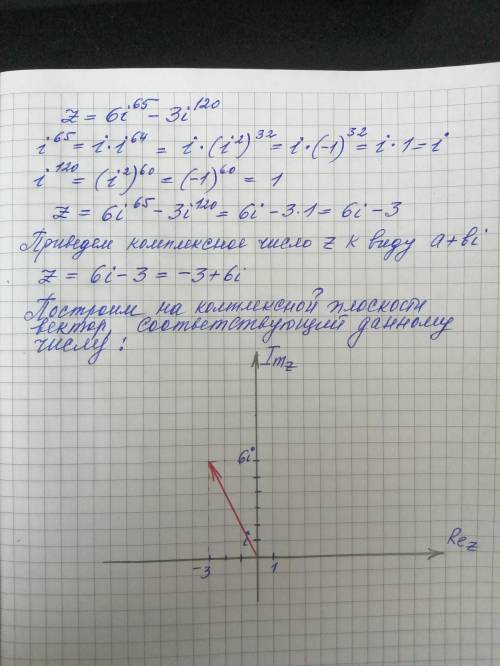 z = 6i⁶⁵ − 3i¹²⁰
i⁶⁵ = i · i⁶⁴ = i · (i²)³² = i · (−1)³² = i · 1 = i
i¹²⁰ = (i²)⁶⁰ = (−1)⁶⁰ = 1
z = 6i⁶⁵ − 3i¹²⁰ = 6i − 3 · 1 = 6i − 3
Приведем комплексное число z к виду a + bi
z = 6i − 3 = −3 + 6i
Построим на комплексной плоскости
вектор, соответствующий данному
числу:
Im z
6i
i
Re z
−3 1